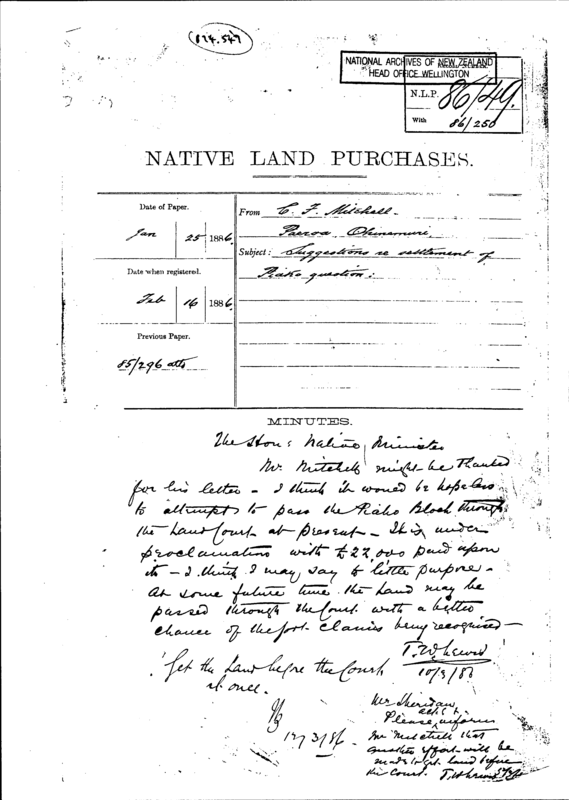 (874.547)
NATIONAL ARCHIVES OF NEW ZEALAND
HEAD OFFICE WELLINGTON
N.L.P. 86/49.
With 86/250
NATIVE LAND PURCHASES.
Date of Paper.
Jan 25 1886.
Date when registered.
Feb 16 1886.
Previous Paper.
85/296 atts
From C. F. Mitchell.
Paeroa Ohinemuri.
Subject: Suggestions re settlement of
Piako question:
MINUTES.
The Hon: Native Minister
Mr. Mitchell might be thanked
for his letter - I think it would be hopeless
to attempt to pass the Piako Block through
the Land Court at present - It is under
proclamation with £22,000 paid upon
it - I think I may say to little purpose -
At some future time the land may be
passed through the Court with a better
chance of the Govt claims being recognised -
T. W. Lewis
10/3/86
Get the land before the Court
at once.
12/3/86
Mr Sheridan
Please inform
Mr Mitchell that
another effort will be
made to get land before
the Court. T. W. Lewis